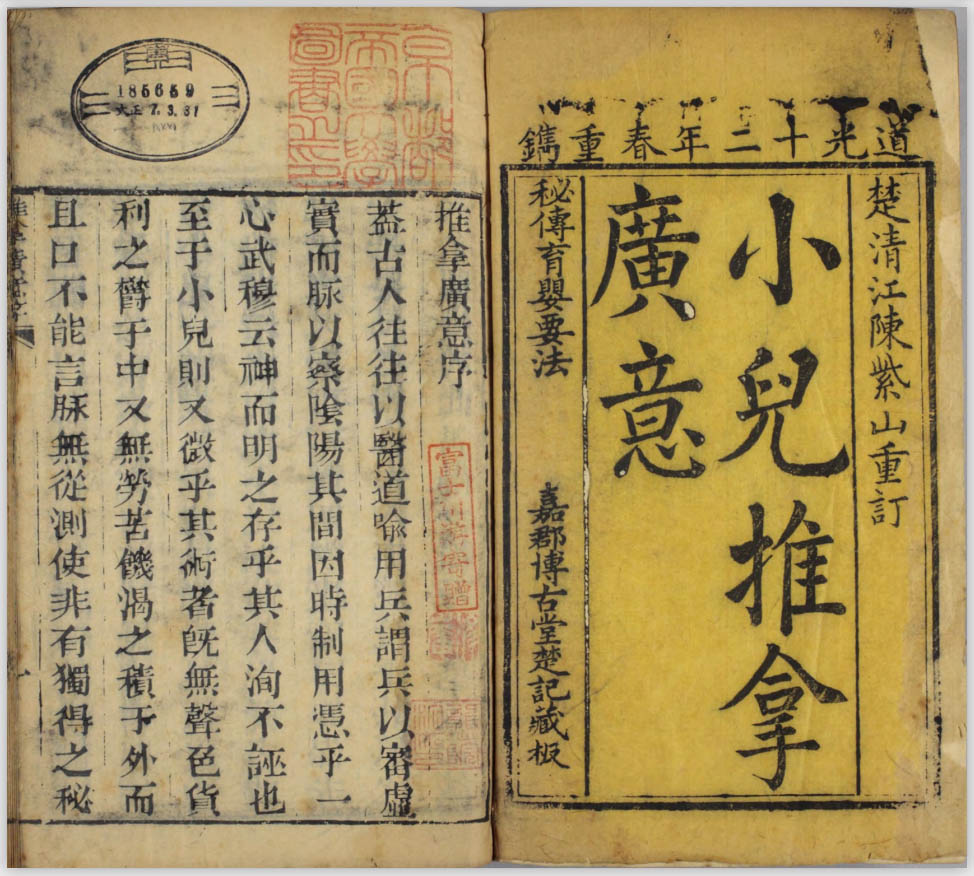 道光十二年春重鐫
楚清江陳紫山重訂
小兒推拿
廣意
秘傳育嬰要法
嘉郡博古堂楚記藏板
京都
帝國大學
圖書之印
185659
大正 7.3.31
推拿廣意序
葢古人往往以醫道喻用兵謂兵以審虛
實而脉以察陰陽其間因時制用憑乎一
心武穆云神而明之存乎其人洵不誣也
至于小兒則又微乎其術者旣無聲色貨
利之欝于中又無勞苦饑渴之積于外而
且口不能言脉無從測使非有獨得之秘
富士川游寄贈
推拿廣意序
一